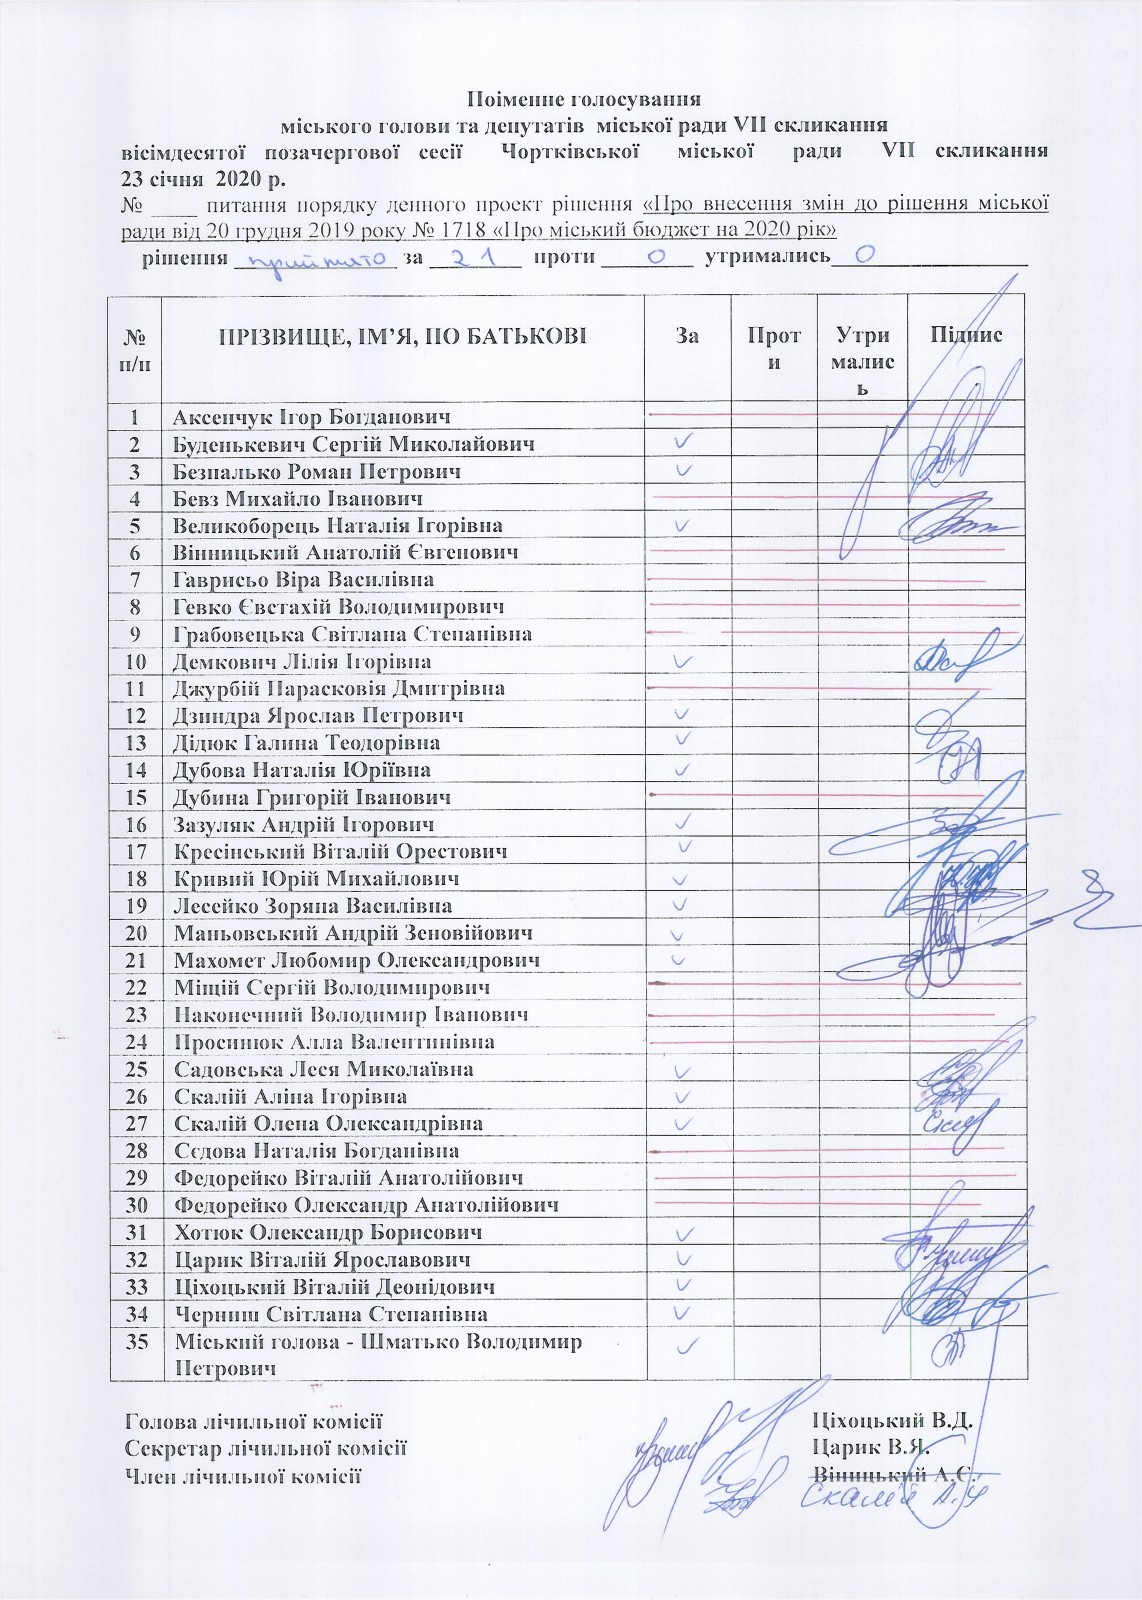 Поіменне голосування
міського голови та депутатів міської ради VII скликання
вісімдесятої позачергової сесії Чортківської міської ради VII скликання
23 січня 2020 р.
№ ____ питання порядку денного проект рішення «Про внесення змін до рішення міської
ради від 20 грудня 2019 року № 1718 «Про міський бюджет на 2020 рік»
рішення прийнято за 21 проти 0 утримались 0
№ п/п ПРІЗВИЩЕ, ІМ’Я, ПО БАТЬКОВІ За Проти Утрималась Підпис
1 Аксенчук Ігор Богданович
2 Буденькевич Сергій Миколайович ✓
3 Безпалько Роман Петрович ✓
4 Бевз Михайло Іванович
5 Великоборець Наталія Ігорівна ✓
6 Вінницький Анатолій Євгенович
7 Гаврисьо Віра Василівна
8 Гевко Євстахій Володимирович
9 Грабовецька Світлана Степанівна
10 Демкович Лілія Ігорівна ✓
11 Джурбій Парасковія Дмитрівна
12 Дзиндра Ярослав Петрович ✓
13 Дідюк Галина Теодорівна ✓
14 Дубова Наталія Юріївна ✓
15 Дубина Григорій Іванович
16 Зазуляк Андрій Ігорович ✓
17 Кресінський Віталій Орестович ✓
18 Кривий Юрій Михайлович ✓
19 Лесейко Зоряна Василівна ✓
20 Маньовський Андрій Зеновійович ✓
21 Махомет Любомир Олександрович ✓
22 Міщій Сергій Володимирович
23 Наконечний Володимир Іванович
24 Просинюк Алла Валентинівна
25 Садовська Леся Миколаївна ✓
26 Скалій Аліна Ігорівна ✓
27 Скалій Олена Олександрівна ✓
28 Сєдова Наталія Богданівна
29 Федорейко Віталій Анатолійович
30 Федорейко Олександр Анатолійович
31 Хотюк Олександр Борисович ✓
32 Царик Віталій Ярославович ✓
33 Ціхоцький Віталій Деонідович ✓
34 Черниш Світлана Степанівна ✓
35 Міський голова - Шматько Володимир ✓
Петрович
Голова лічильної комісії Ціхоцький В.Д.
Секретар лічильної комісії Царик В.Я.
Член лічильної комісії Віницький А.Є.
Скалій А.І